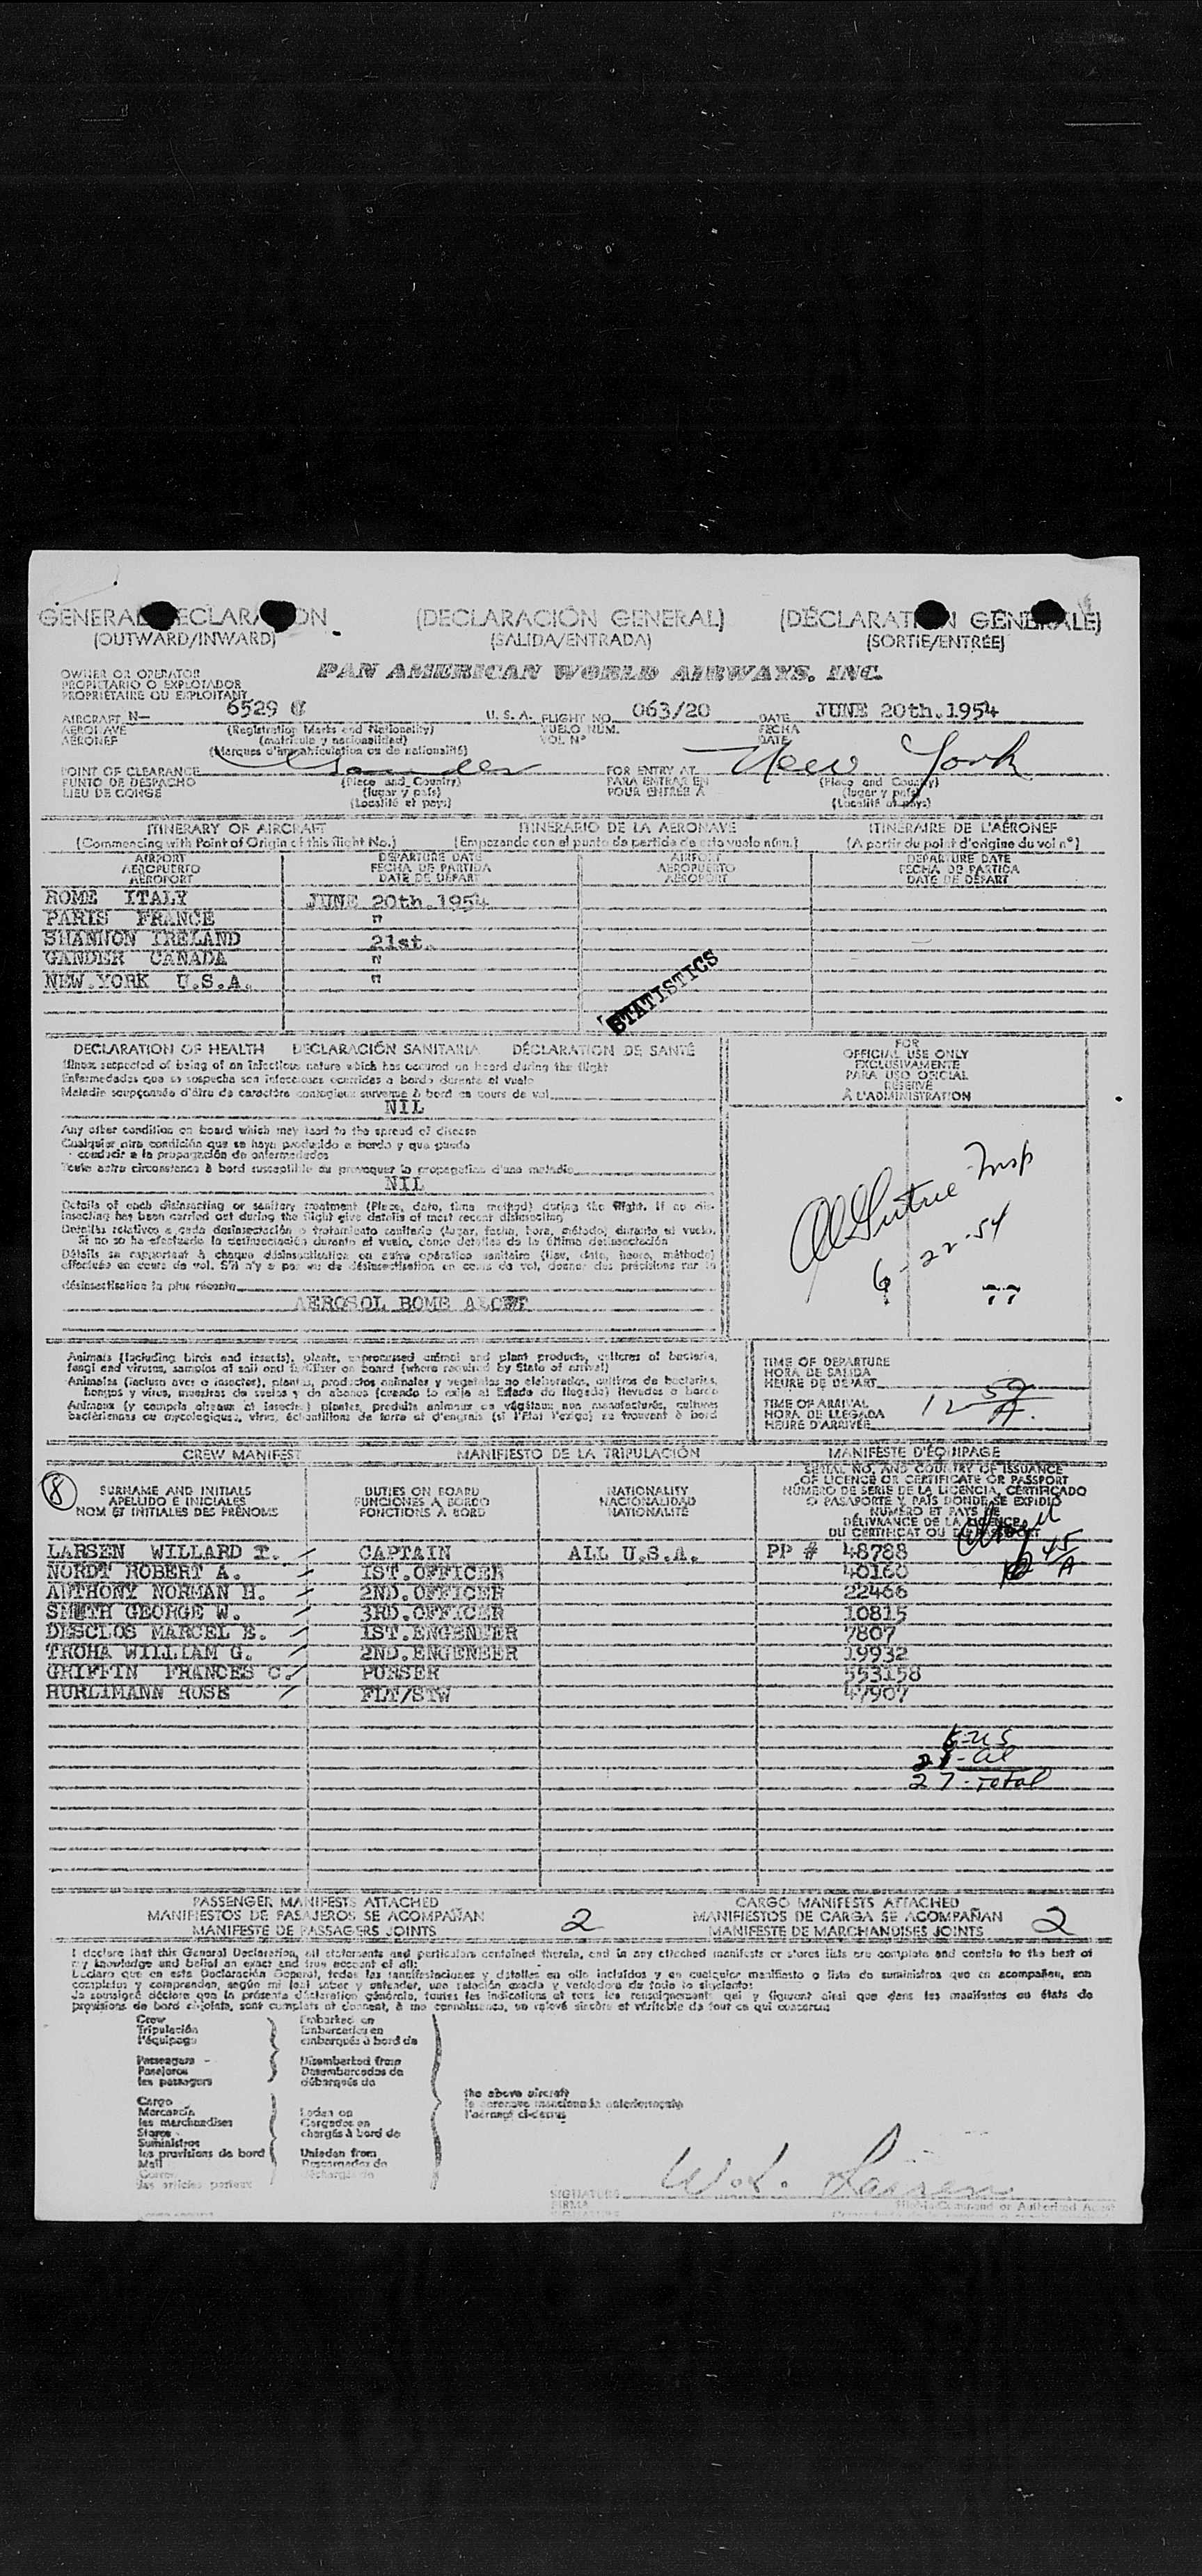 GENERAL DECLARATION (DECLARACIÓN GENERAL) (DÉCLARATION GÉNÉRALE)
(OUTWARD/INWARD) (SALIDA/ENTRADA) (SORTIE/ENTRÉE)
OWNER OR OPERATOR
PROPIETARIO O EXPLOTADOR
PROPRIÉTAIRE OU EXPLOITANT
PAN AMERICAN WORLD AIRWAYS, INC.
AIRCRAFT N— 6529 U.S.A. FLIGHT NO. 063/20 DATE JUNE 20th.1954
AERONAVE (Registration Marks and Nationality) VUELO NUM. FECHA
AÉRONEF (matrícula y nacionalidad) VOL Nº DATE
(Marques d'immatriculation ou de nationalité)
POINT OF CLEARANCE Gander FOR ENTRY AT New York
PUNTO DE DESPACHO (Place and Country) PARA ENTRAR EN (Place and Country)
LIEU DE CONGÉ (lugar y país) POUR ENTRÉE À (lugar y país)
(Localité et pays) (Localité et pays)
ITINERARY OF AIRCRAFT ITINERARIO DE LA AERONAVE ITINÉRAIRE DE L'AÉRONEF
(Commencing with Point of Origin of this flight No.) (Empezando con el punto de partida de este vuelo núm.) (A partir du point d'origine du vol nº)
AIRPORT DEPARTURE DATE AIRPORT DEPARTURE DATE
AEROPUERTO FECHA DE PARTIDA AEROPUERTO FECHA DE PARTIDA
AÉROPORT DATE DE DÉPART AÉROPORT DATE DE DÉPART
ROME ITALY JUNE 20th.1954
PARIS FRANCE "
SHANNON IRELAND 21st.
GANDER CANADA "
NEW.YORK U.S.A. "
STATISTICS
DECLARATION OF HEALTH DECLARACIÓN SANITARIA DÉCLARATION DE SANTÉ
Illness suspected of being of an infectious nature which has occurred on board during the flight
Enfermedades que se sospecha son infecciosas ocurridas a bordo durante el vuelo
Maladie soupçonnée d'être de caractère contagieux survenue à bord en cours de vol
NIL
Any other condition on board which may lead to the spread of disease
Cualquier otra condición que se haya producido a bordo y que pueda
conducir a la propagación de enfermedades
Toute autre circonstance à bord susceptible de provoquer la propagation d'une maladie
NIL
Details of each disinsecting or sanitary treatment (Place, date, time method) during the flight. If no disinsecting has been carried out during the flight give details of most recent disinsecting
Detalles relativos a cada desinsectación o tratamiento sanitario (lugar, fecha, hora, método) durante el vuelo.
Si no se ha efectuado la desinsectación durante el vuelo, dense detalles de la última desinsectación
Détails se rapportant à chaque désinsectisation ou autre opération sanitaire (lieu, date, heure, méthode)
effectuée en cours de vol. S'il n'y a pas eu de désinsectisation en cours de vol, donner des précisions sur la
désinsectisation la plus récente
AEROSOL BOMB
FOR
OFFICIAL USE ONLY
EXCLUSIVEMENTE
PARA USO OFICIAL
RÉSERVÉ
À L'ADMINISTRATION
Insp
6-22-54
77
Animals (including birds and insects), plants, unprocessed animal and plant products, cultures of bacteria,
fungi and viruses, samples of soil and fertilizer on board (where required by State of arrival)
Animales (incluso aves o insectos), plantas, productos animales y vegetales no elaborados, cultivos de bacterias,
hongos y virus, muestras de suelos y de abonos (cuando lo exija el Estado de llegada) llevados a bordo
Animaux (y compris oiseaux et insectes) plantes, produits animaux ou végétaux non manufacturés, cultures
bactériennes ou mycologiques, virus, échantillons de terre et d'engrais (si l'État l'exige) se trouvant à bord
TIME OF DEPARTURE
HORA DE SALIDA
HEURE DE DÉPART
TIME OF ARRIVAL 12 59 A.
HORA DE LLEGADA
HEURE D'ARRIVÉE
CREW MANIFEST MANIFIESTO DE LA TRIPULACIÓN MANIFESTE D'ÉQUIPAGE
8
SURNAME AND INITIALS
APELLIDO E INICIALES
NOM ET INITIALES DES PRÉNOMS
DUTIES ON BOARD
FUNCIONES A BORDO
FONCTIONS À BORD
NATIONALITY
NACIONALIDAD
NATIONALITÉ
SERIAL NO. AND COUNTRY OF ISSUANCE
OF LICENCE OR CERTIFICATE OR PASSPORT
NÚMERO DE SERIE DE LA LICENCIA, CERTIFICADO
O PASAPORTE Y PAÍS DONDE SE EXPIDIÓ
NUMÉRO ET PAYS DE
DÉLIVRANCE DE LA LICENCE,
DU CERTIFICAT OU DU PASSEPORT
LARSEN WILLARD T. CAPTAIN ALL U.S.A. PP # 48788
NORDT ROBERT A. 1ST.OFFICER 40160
ANTHONY NORMAN H. 2ND.OFFICER 22466
SMITH GEORGE W. 3RD.OFFICER 10815
DESCLOS MARCEL E. 1ST.ENGENEER 7807
TROHA WILLIAM G. 2ND.ENGENEER 19932
GRIFFIN FRANCES C. PURSER 553158
HURLIMANN ROSE FLT/STW 47907
6-US
21-al
27-Total
PASSENGER MANIFESTS ATTACHED CARGO MANIFESTS ATTACHED
MANIFIESTOS DE PASAJEROS SE ACOMPAÑAN 2 MANIFIESTOS DE CARGA SE ACOMPAÑAN 2
MANIFESTE DE PASSAGERS JOINTS MANIFESTE DE MARCHANDISES JOINTS
I declare that this General Declaration, all statements and particulars contained therein, and in any attached manifests or stores lists are complete and contain to the best of
my knowledge and belief an exact and true account of all:
Declaro que en esta Declaración General, todas las manifestaciones y detalles en ella incluídos y en cualquier manifiesto o lista de suministros que se acompañen, son
completos y comprenden, según mi leal saber y entender, una relación exacta y verdadera de todo lo siguiente:
Je soussigné déclare que la présente déclaration générale, toutes les indications et tous les renseignements qui y figurent ainsi que dans les manifestes ou états de
provisions de bord ci-joints, sont complets et donnent, à ma connaissance, un relevé sincère et véritable de tout ce qui concerne:
Crew Embarked on
Tripulación Embarcados en
l'équipage embarqués à bord de
Passengers Disembarked from
Pasajeros Desembarcados de
les passagers débarqués de
Cargo the above aircraft
Mercancía la aeronave mencionada anteriormente
les marchandises Laden on l'aéronef ci-dessus
Stores Cargados en
Suministros chargés à bord de
les provisions de bord Unladen from
Mail Descargados de
Correo déchargés de
les articles postaux
SIGNATURE W.T. Larsen
FIRMA
SIGNATURE
Pilot-in-Command or Authorized Agent